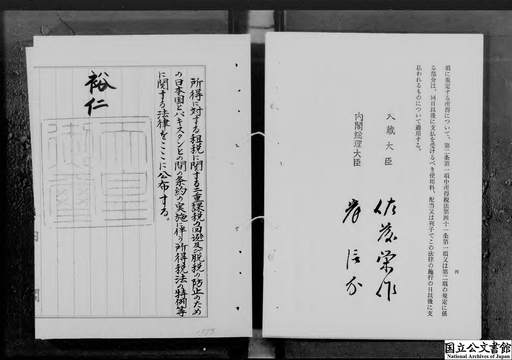 項に規定する所得について、第二条第二項中所得税法第四十一条第一項又は第二項の規定に係
る部分は、同日以後に支払を受けるべき使用料、配当又は利子でこの法律の施行の日以後に支
払われるものについて適用する。
四
大蔵大臣
佐藤栄作
内閣総理大臣
岸信介
所得に対する租税に関する二重課税の回避及び脱税の防止のため
の日本国とパキスタンとの間の条約の実施に伴う所得税法の特例等
に関する法律をここに公布する。
裕仁
天皇
御璽
国立公文書館
National Archives of Japan